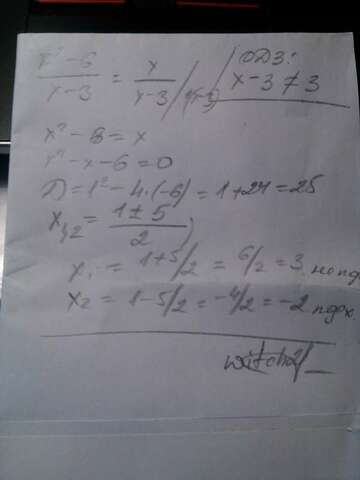 x² - 6 / x - 3 = x / x - 3 / ·(x-3)
ОДЗ:
x - 3 ≠ 3
x² - 6 = x
x² - x - 6 = 0
D = 1² - 4·(-6) = 1 + 24 = 25
x₁,₂ = 1 ± 5 / 2 ;
x₁ = 1+5/2 = 6/2 = 3 не под
x₂ = 1-5/2 = -4/2 = -2 подх